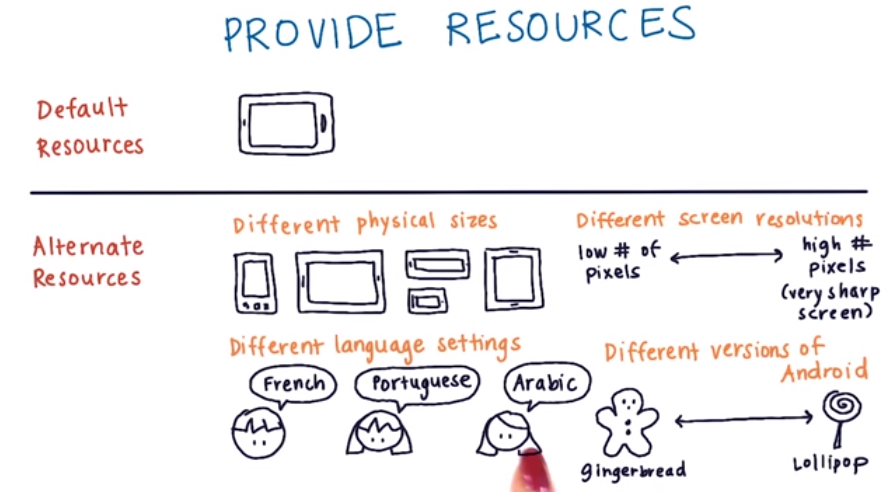 PROVIDE RESOURCES
Default
Resources
Alternate
Resources
Different physical sizes
Different screen resolutions
low # of
pixels
high #
pixels
(very sharp
screen)
Different language settings
French
Portuguese
Arabic
Different versions of
Android
gingerbread
Lollipop